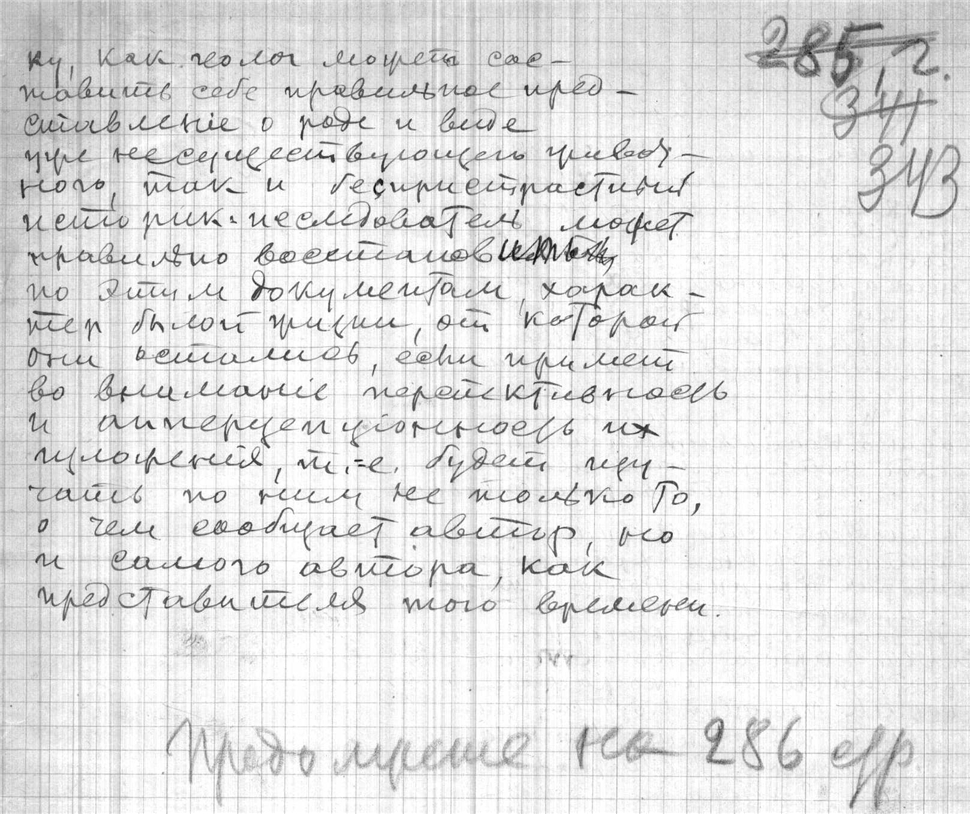 285, г.
341
343
ку, как геолог может сос-
тавить себе правильное пред-
ставленiе о роде и виде
уже несуществующего живот-
ного, так и беспристрастный
историк-исследователь может
правильно восстановить
по этим документам, харак-
тер былой жизни, от которой
они остались, если примет
во вниманiе перспективность
и апперцепцiонность их
изложенiя, т.-е. будет изу-
чать по ним не только то,
о чем сообщает автор, но
и самого автора, как
представителя того времени.
Продолжение на 286 стр.